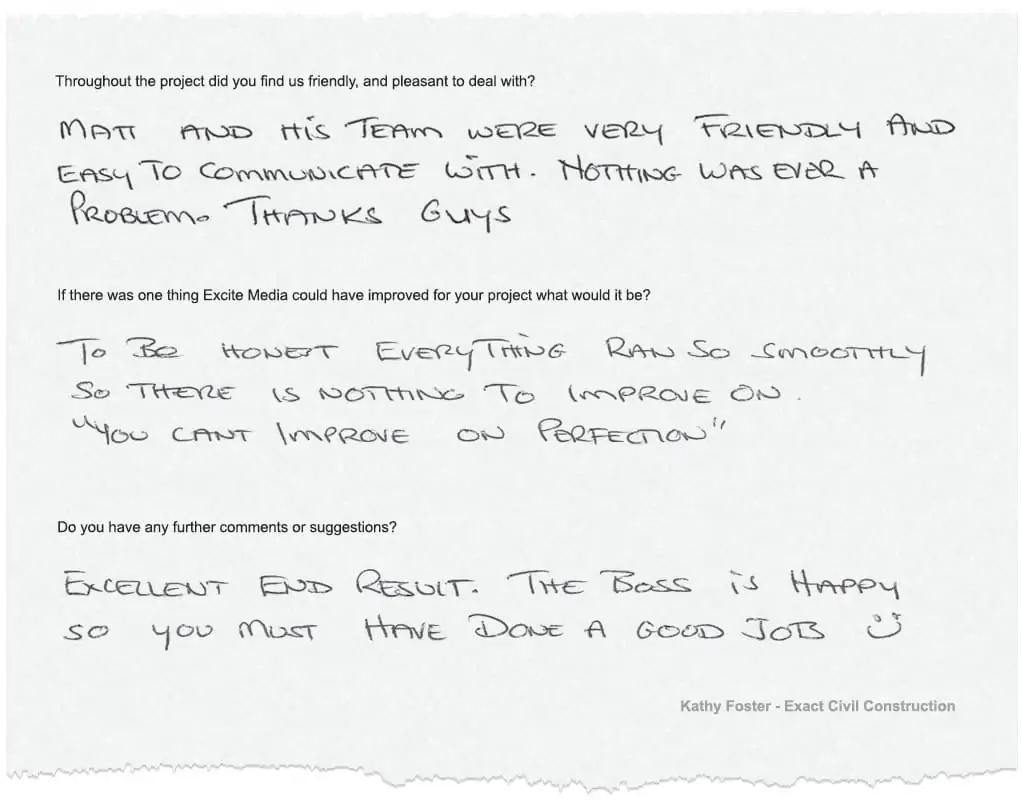 Throughout the project did you find us friendly, and pleasant to deal with?
MATT AND HIS TEAM WERE VERY FRIENDLY AND
EASY TO COMMUNICATE WITH. NOTHING WAS EVER A
PROBLEM. THANKS GUYS
If there was one thing Excite Media could have improved for your project what would it be?
TO BE HONEST EVERYTHING RAN SO SMOOTHLY
SO THERE IS NOTHING TO IMPROVE ON.
"YOU CANT IMPROVE ON PERFECTION"
Do you have any further comments or suggestions?
EXCELLENT END RESULT. THE BOSS IS HAPPY
SO YOU MUST HAVE DONE A GOOD JOB
Kathy Foster - Exact Civil Construction